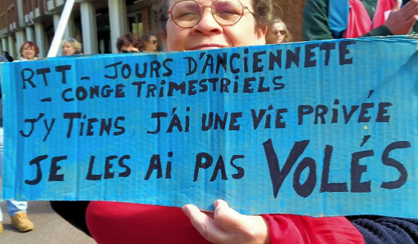 RTT - JOURS D'ANCIENNETÉ
- CONGÉ TRIMESTRIELS
J'Y TIENS, J'AI UNE VIE PRIVÉE
JE LES AI PAS VOLÉS